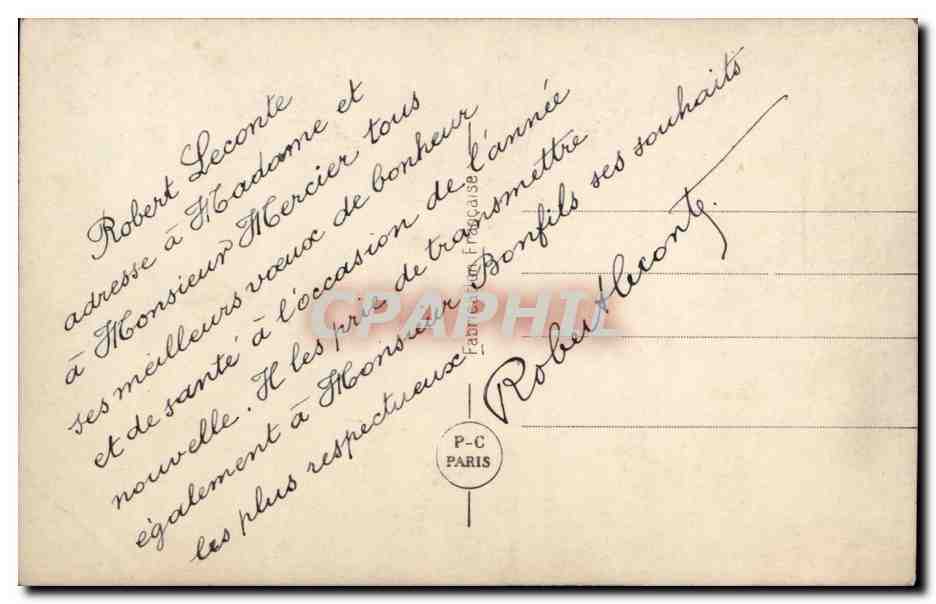 Robert Leconte
adresse à Madame et
à Monsieur Mercier tous
ses meilleurs vœux de bonheur
et de santé à l'occasion de l'année
nouvelle. Il les prie de transmettre
également à Monsieur Bonfils ses souhaits
les plus respectueux
Robert Leconte.
Fabrication Française
P-C
PARIS
CPAPHIL